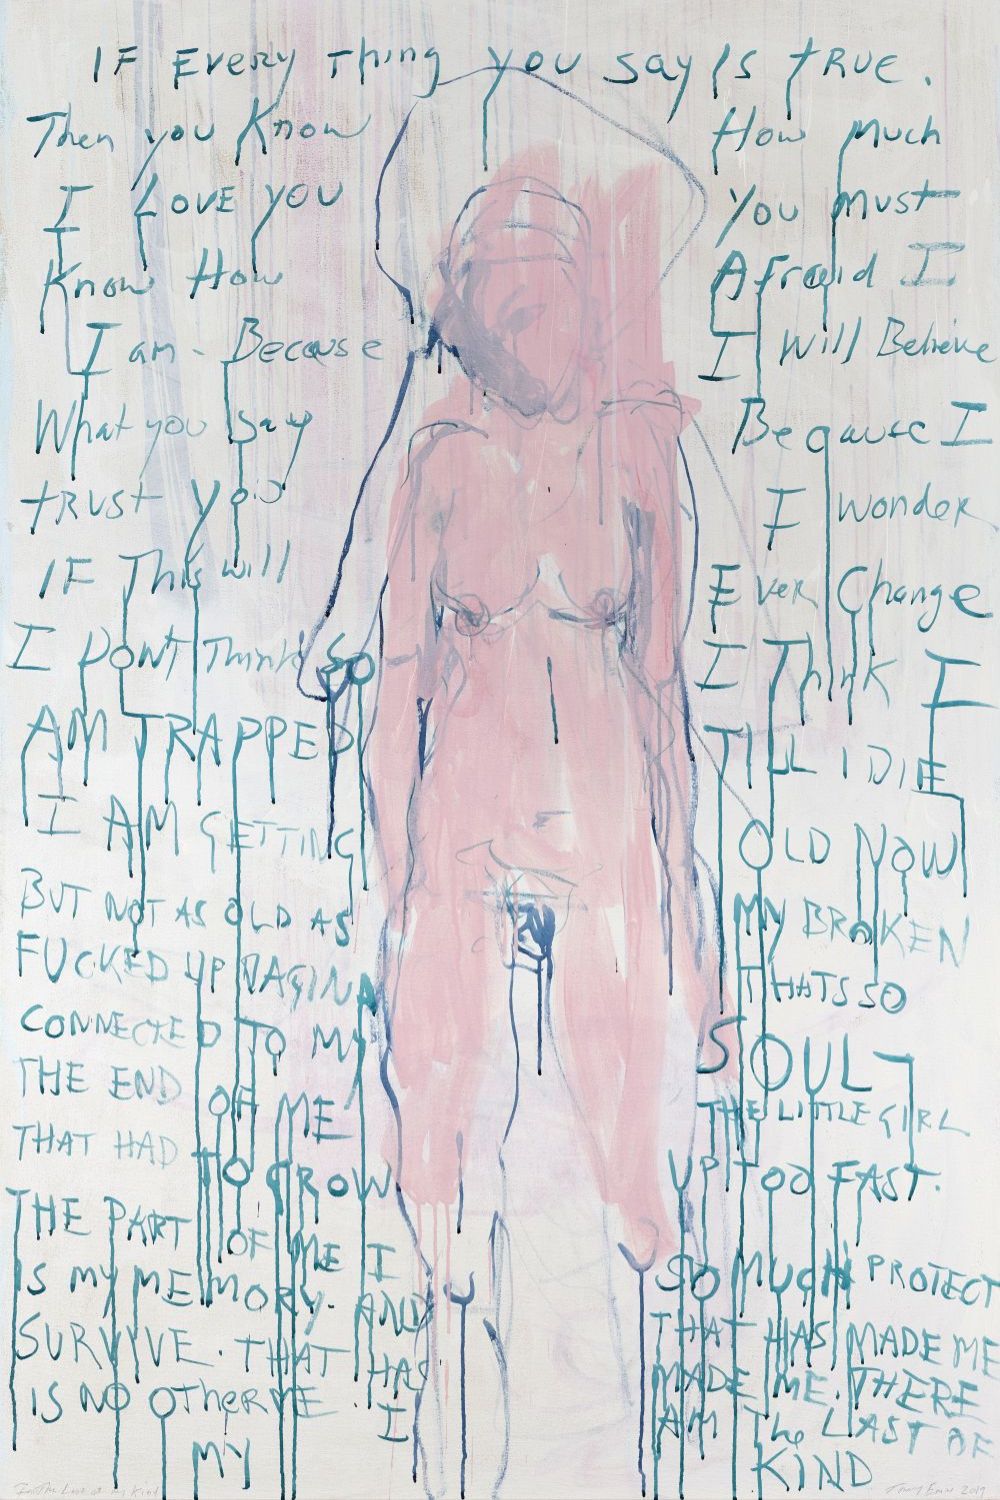 IF Every Thing you say Is TRUE.
Then you Know How Much
I LOVE YOU You Must
Know How Afraid I
I am - Because I Will Believe
What you say Because I
TRUST you I Wonder
IF This will Ever Change
I DONT Think SO I Think I
AM TRAPPED TILL I DIE
I AM GETTING OLD NOW
BUT NOT AS OLD AS MY BROKEN
FUCKED UP VAGINA THATS SO
CONNECTED TO MY SOUL -
THE END OF ME THE LITTLE GIRL
THAT HAD TO GROW UP TOO FAST.
THE PART OF ME I SO MUCH PROTECT
IS MY MEMORY. AND THAT HAS MADE ME
SURVIVE. THAT HAS MADE ME. THERE
IS NO OTHER ME. I AM The LAST OF
MY KIND
The Last of my Kind Tracey Emin 2019